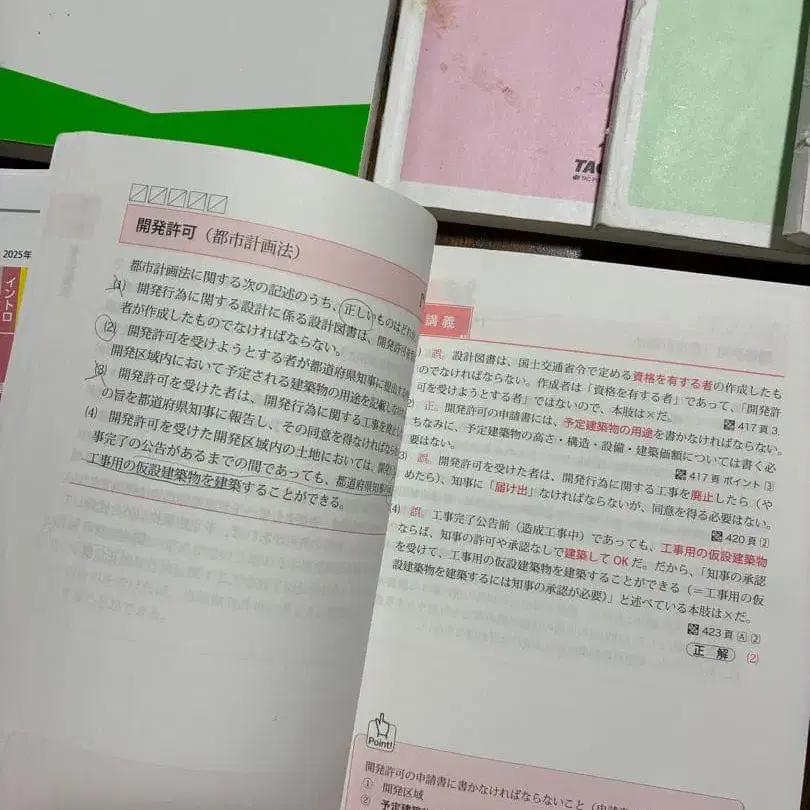 TAC
2025年
イントロ
開発許可(都市計画法)
都市計画法に関する次の記述のうち、正しいものはどれ
(1) 開発行為に関する設計に係る設計図書は、開発許可を
者が作成したものでなければならない。
(2) 開発許可を受けようとする者が都道府県知事に提出する
開発区域内において予定される建築物の用途を記載しなけれ
(3) 開発許可を受けた者は、開発行為に関する工事を廃止し
の旨を都道府県知事に報告し、その同意を得なければなら
(4) 開発許可を受けた開発区域内の土地においては、開発
事完了の公告があるまでの間であっても、都道府県知事の
工事用の仮設建築物を建築することができる。
講義
誤。設計図書は、国土交通省令で定める資格を有する者の作成したも
のでなければならない。作成者は「資格を有する者」であって、「開発許
可を受けようとする者」ではないので、本肢は×だ。
417頁 3.
正。開発許可の申請書には、予定建築物の用途を書かなければならない。
ちなみに、予定建築物の高さ・構造・設備・建築価額については書く必
要はない。
417頁 ポイント③
誤。開発許可を受けた者は、開発行為に関する工事を廃止したら(や
めたら)、知事に「届け出」なければならないが、同意を得る必要はない。
420頁②
(4) 誤。工事完了公告前(造成工事中)であっても、工事用の仮設建築物
ならば、知事の許可や承認なしで建築してOKだ。だから、「知事の承認
を受けて、工事用の仮設建築物を建築することができる(=工事用の仮
設建築物を建築するには知事の承認が必要)」と述べている本肢は×だ。
423頁 A ②
正解 (2)
Point!
開発許可の申請書に書かなければならないこと(申請
① 開発区域
② 予定建築